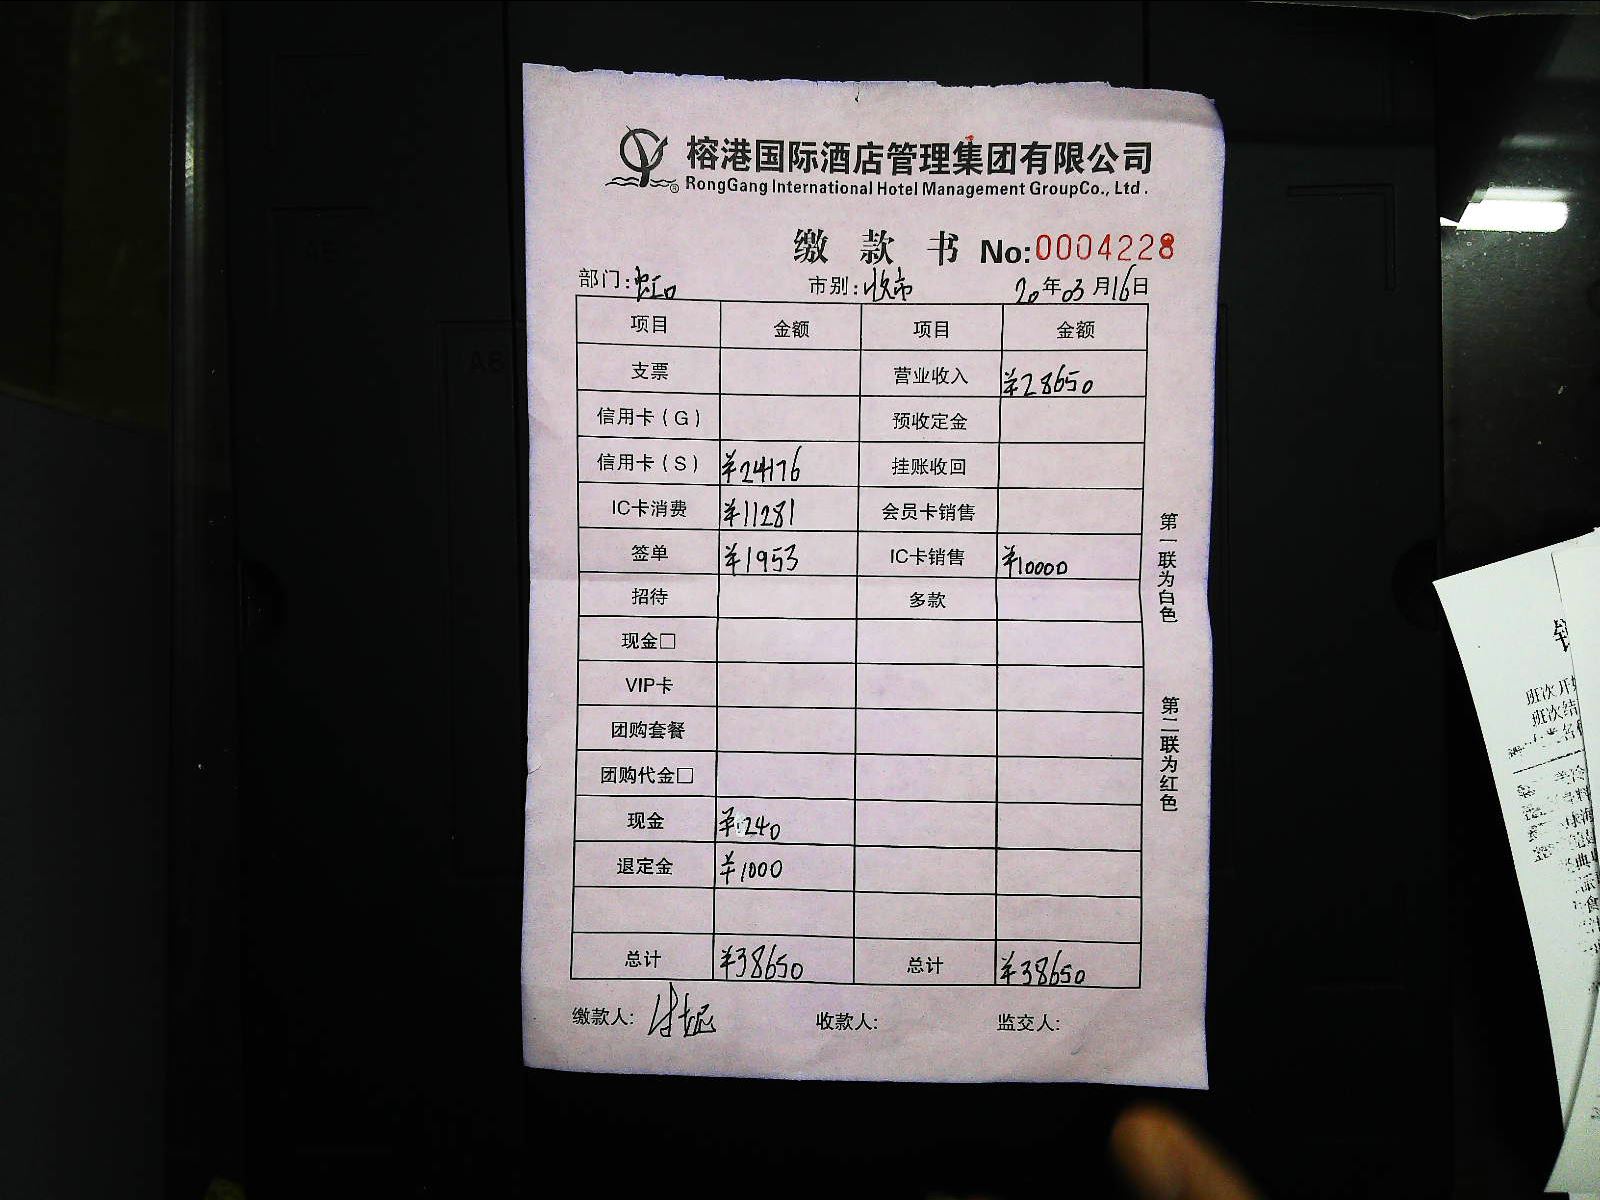 榕港国际酒店管理集团有限公司
RongGang International Hotel Management GroupCo., Ltd.
缴 款 书 No:0004228
部门:虹口 市别:收市 20年03月16日
项目 金额 项目 金额
支票 营业收入 ¥28650
信用卡(G) 预收定金
信用卡(S) ¥24176 挂账收回
IC卡消费 ¥11281 会员卡销售
签单 ¥1953 IC卡销售 ¥10000
招待 多款
现金□
VIP卡
团购套餐
团购代金□
现金 ¥240
退定金 ¥1000
总计 ¥38650 总计 ¥38650
缴款人: 收款人: 监交人:
第一联为白色
第二联为红色
班次开
班次结